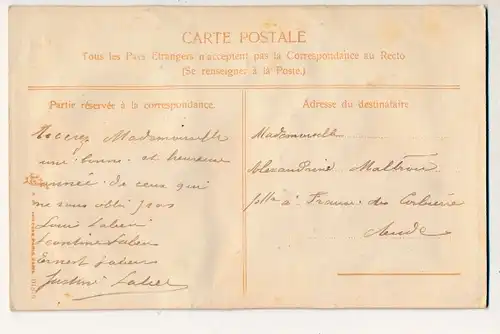 CARTE POSTALE
Tous les Pays Etrangers n'acceptent pas la Correspondance au Recto
(Se renseigner à la Poste.)
Partie réservée à la correspondance.
Adresse du destinataire
Recevez Mademoiselle
une bonne et heureuse
année de ceux qui
ne vous obli pas
Louis
Léontine
Ernest
Justine
Mademoiselle
Alexandrine
à des Corbières
Aude